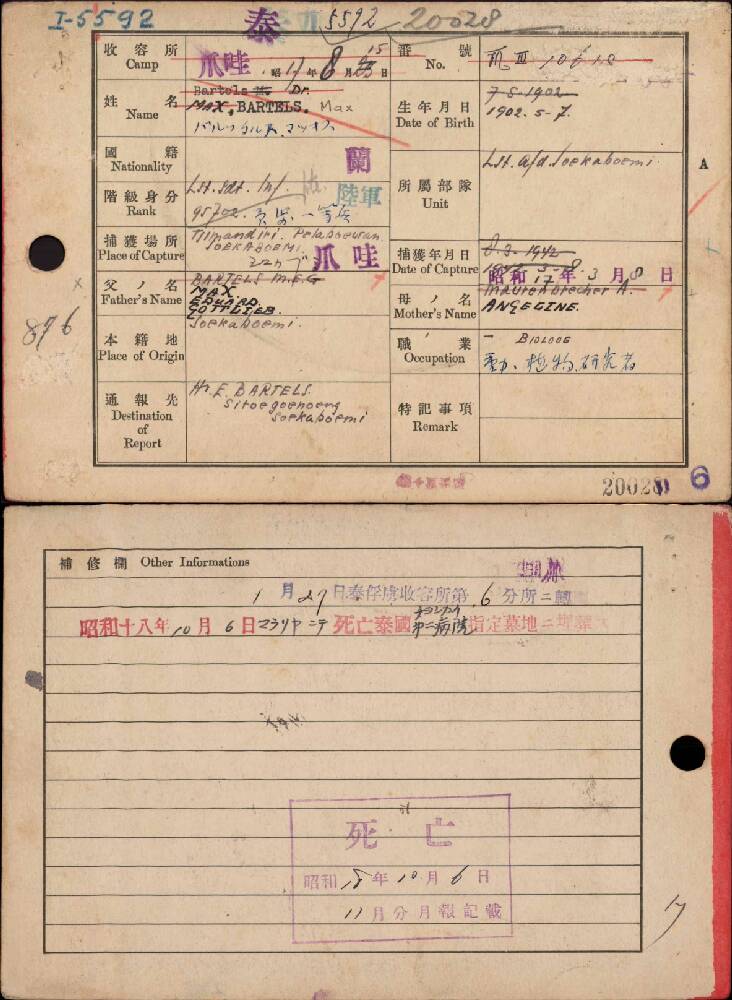 I-5592 泰 5592 20028
收容所 Camp 爪哇 昭 17 年 8 月 15 日
番號 No.
姓名 Name Bartels M. Dr.
MAX, BARTELS. Max
生年月日 Date of Birth 7-8-1902
1902. 5-7.
國籍 Nationality 蘭
階級身分 Rank Lst. sdt. Inf. 陸軍
95702.
所屬部隊 Unit Lst. afd. Soekaboemi
A
捕獲場所 Place of Capture Tjimandiri. Pelaboewan
SOEKABOEMI. 爪哇
捕獲年月日 Date of Capture 8-3-1942
昭和 17 年 3 月 8 日
父ノ名 Father's Name BARTELS M.E.G
MAX
EDUARD.
GOTTLIEB.
母ノ名 Mother's Name Maurenbrecher A.
ANGELINE.
876
本籍地 Place of Origin Soekaboemi.
職業 Occupation BIOLOOG
動、植物研究者
通報先 Destination of Report Hr. E. BARTELS.
Sitoegoenoeng
Soekaboemi
特記事項 Remark
20028 6
補修欄 Other Informations
1 月 27 日泰俘虜收容所第 6 分所ニ轉
昭和十八年 10 月 6 日マラリヤニテ死亡泰國 第二病院指定墓地ニ埋葬
死亡
昭和 18 年 10 月 6 日
11 月分月報記載
17